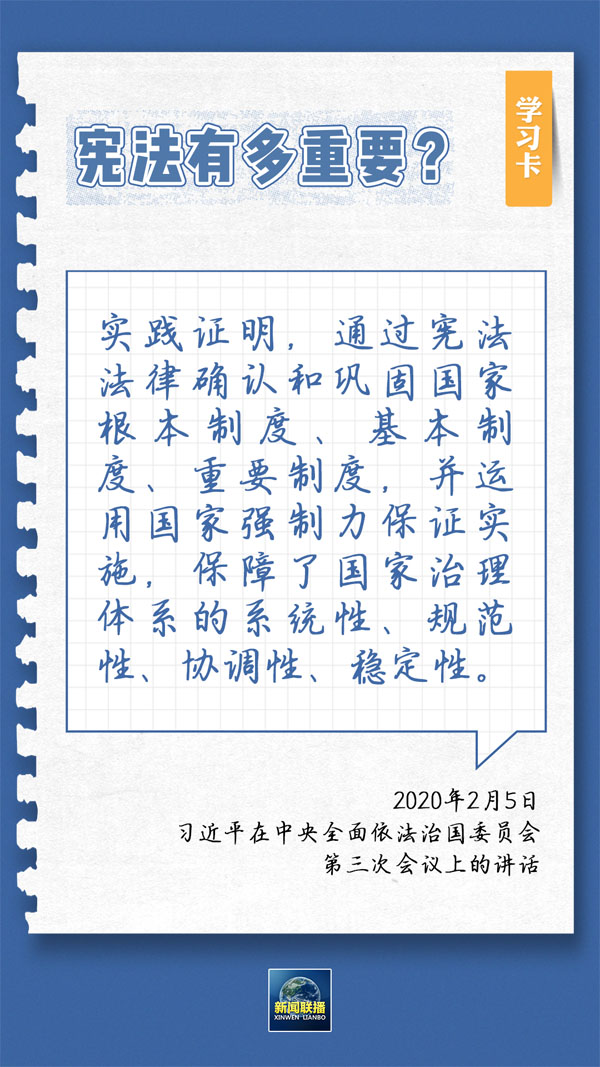 宪法有多重要？
学习卡
实践证明，通过宪法
法律确认和巩固国家
根本制度、基本制
度、重要制度，并运
用国家强制力保证实
施，保障了国家治理
体系的系统性、规范
性、协调性、稳定性。
2020年2月5日
习近平在中央全面依法治国委员会
第三次会议上的讲话
新闻联播
XINWEN LIANBO